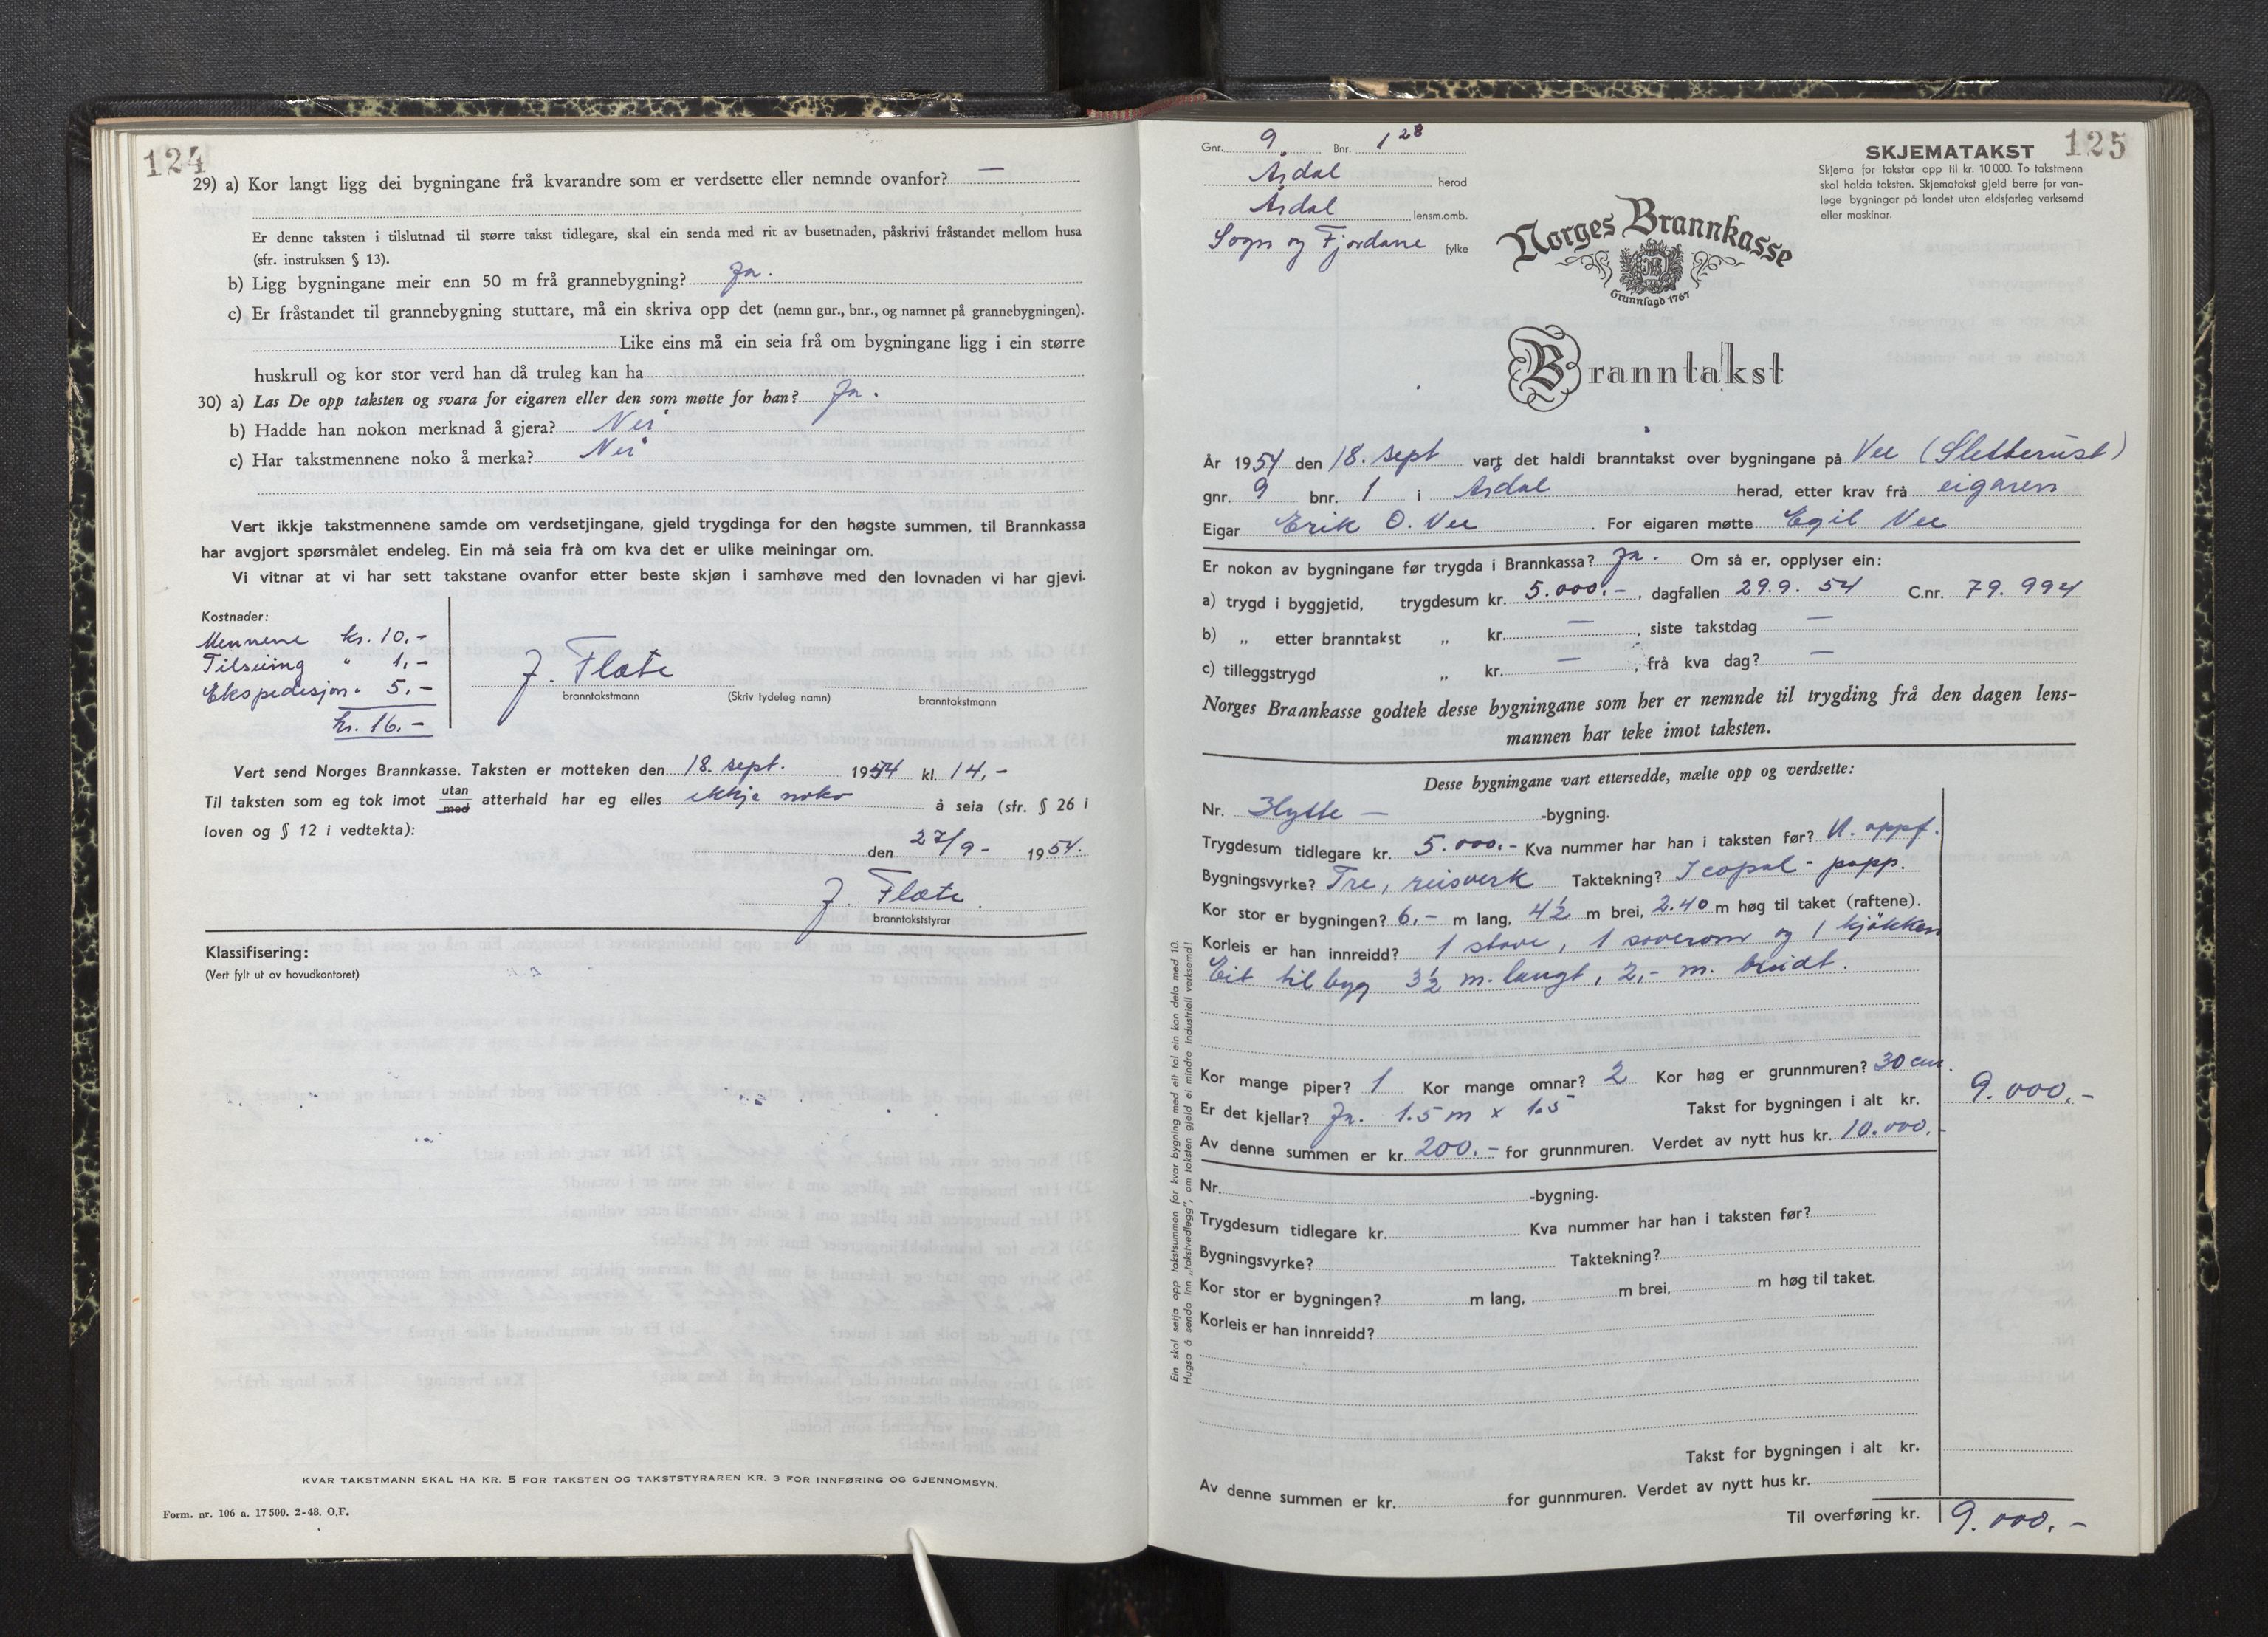 124
29) a) Kor langt ligg dei bygningane frå kvarandre som er verdsette eller nemnde ovanfor? —
Er denne taksten i tilslutnad til større takst tidlegare, skal ein senda med rit av busetnaden, påskrivi fråstandet mellom husa
(sfr. instruksen § 13).
b) Ligg bygningane meir enn 50 m frå grannebygning? Ja.
c) Er fråstandet til grannebygning stuttare, må ein skriva opp det (nemn gnr., bnr., og namnet på grannebygningen).
Like eins må ein seia frå om bygningane ligg i ein større
huskrull og kor stor verd han då truleg kan ha
30) a) Las De opp taksten og svara for eigaren eller den som møtte for han? Ja.
b) Hadde han nokon merknad å gjera? Nei
c) Har takstmennene noko å merka? Nei
Vert ikkje takstmennene samde om verdsetjingane, gjeld trygdinga for den høgste summen, til Brannkassa
har avgjort spørsmålet endeleg. Ein må seia frà om kva det er ulike meiningar om.
Vi vitnar at vi har sett takstane ovanfor etter beste skjøn i samhøve med den lovnaden vi har gjevi.
Kostnader:
Mennene kr. 10.-
Tilseiing " 1,-
Ekspedisjon " 5.-
kr. 16.-
J. Flæte
branntakstmann (Skriv tydeleg namn) branntakstmann
Vert send Norges Brannkasse. Taksten er motteken den 18. sept. 1954 kl. 14,-
Til taksten som eg tok imot utan/med atterhald har eg elles ikkje noko å seia (sfr. § 26 i
loven og § 12 i vedtekta):
den 27/9- 1954.
J. Flæte.
branntakststyrar
Klassifisering:
(Vert fylt ut av hovudkontoret)
KVAR TAKSTMANN SKAL HA KR. 5 FOR TAKSTEN OG TAKSTSTYRAREN KR. 3 FOR INNFØRING OG GJENNOMSYN.
Form. nr. 106 a. 17 500. 2-48. O.F.
Gnr. 9 Bnr. 1 28
Årdal herad
Årdal lensm.omb.
Sogn og Fjordane fylke
SKJEMATAKST
125
Skjema for takstar opp til kr. 10 000. To takstmenn
skal halda taksten. Skjematakst gjeld berre for van-
lege bygningar på landet utan eldsfarleg verksemd
eller maskinar.
Norges Brannkasse
Grunnlagd 1767
Branntakst
År 1954 den 18. sept vart det haldi branntakst over bygningane på Vee (Sletterust)
gnr. 9 bnr. 1 i Årdal herad, etter krav frå eigaren
Eigar Erik O. Vee. For eigaren møtte Egil Vee
Er nokon av bygningane før trygda i Brannkassa? Ja. Om så er, opplyser ein:
a) trygd i byggjetid, trygdesum kr. 5.000.-, dagfallen 29.9. 54 C.nr. 79.994
b) „ etter branntakst „ kr. —, siste takstdag —
c) tilleggstrygd „ kr. —, frå kva dag? —
Norges Brannkasse godtek desse bygningane som her er nemnde til trygding frå den dagen lens-
mannen har teke imot taksten.
Desse bygningane vart ettersedde, mælte opp og verdsette:
Nr. Hytte — -bygning.
Trygdesum tidlegare kr. 5.000.- Kva nummer har han i taksten før? U. oppf.
Bygningsvyrke? Tre, reisverk Taktekning? Icopal - papp.
Kor stor er bygningen? 6,- m lang, 4½ m brei, 2.40 m høg til taket (raftene).
Korleis er han innreidd? 1 stove, 1 soverom og 1 kjøkken
Eit tilbygg 3½ m. langt, 2,- m. breidt.
Kor mange piper? 1 Kor mange omnar? 2 Kor høg er grunnmuren? 30 cm.
Er det kjellar? Ja. 1.5 m x 1.5 Takst for bygningen i alt kr. 9.000.-
Av denne summen er kr. 200.- for grunnmuren. Verdet av nytt hus kr. 10.000.-
Nr. -bygning.
Trygdesum tidlegare kr. Kva nummer har han i taksten før?
Bygningsvyrke? Taktekning?
Kor stor er bygningen? m lang, m brei, m høg til taket.
Korleis er han innreidd?
Takst for bygningen i alt kr.
Av denne summen er kr. for gunnmuren. Verdet av nytt hus kr.
Til overføring kr. 9.000.-
Ein skal setja opp takstsummen for kvar bygning med eit tal ein kan dela med 10.
Hugsa å senda inn „takstvedlegg", om taksten gjeld ei mindre industriell verksemd!